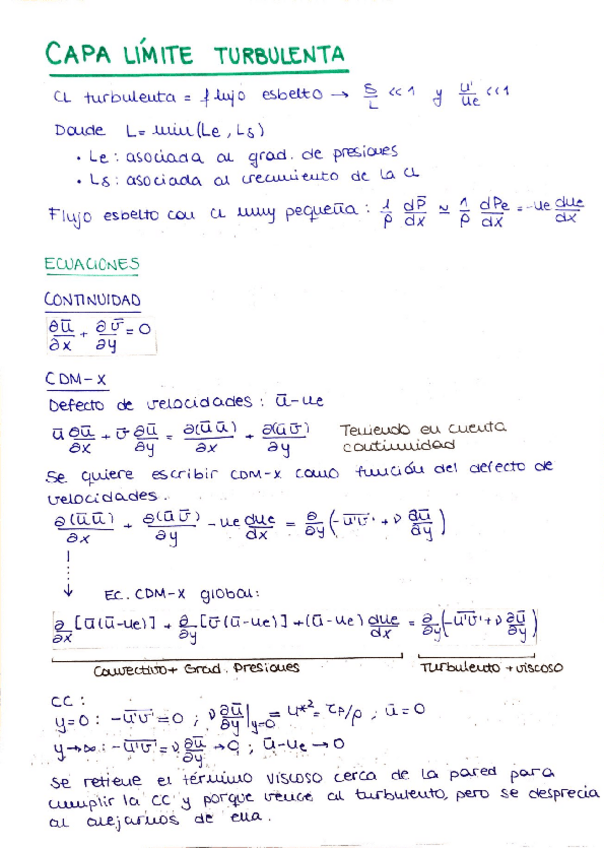 CAPA LÍMITE TURBULENTA
CL turbulenta = flujo esbelto → δ/L <<1 y u'/ue <<1
Donde L = min(Le, Lδ)
• Le: asociada al grad. de presiones
• Lδ: asociada al crecimiento de la CL
Flujo esbelto con CL muy pequeña: 1/ρ dP̄/dx ≃ 1/ρ dPe/dx = -ue due/dx
ECUACIONES
CONTINUIDAD
∂ū/∂x + ∂v̄/∂y = 0
CDM-X
Defecto de velocidades: ū-ue
ū ∂ū/∂x + v̄ ∂ū/∂y = ∂(ūū)/∂x + ∂(ūv̄)/∂y Teniendo en cuenta
continuidad
Se quiere escribir CDM-X como función del defecto de
velocidades.
∂(ūū)/∂x + ∂(ūv̄)/∂y - ue due/dx = ∂/∂y (-u'v'‾ + ν ∂ū/∂y)
↓ EC. CDM-X global:
∂/∂x [ū(ū-ue)] + ∂/∂y [v̄(ū-ue)] + (ū-ue) due/dx = ∂/∂y (-u'v'‾ + ν ∂ū/∂y)
Convectivo + Grad. Presiones Turbulento + viscoso
CC:
y=0: -u'v'‾ = 0 ; ν ∂ū/∂y|y=0 = u*² = τp/ρ ; ū=0
y→∞: -u'v'‾ = ν ∂ū/∂y → 0 ; ū-ue → 0
Se retiene el término viscoso cerca de la pared para
cumplir la CC y porque vence al turbulento, pero se desprecia
al alejarnos de ella.